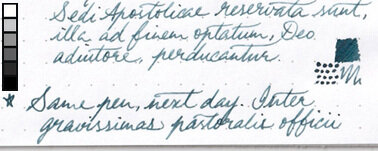 Sedi Apostolicae reservata sunt,
illa ad finem optatum, Deo
adiutore, perducantur.
* Same pen, next day. Inter
gravissimas pastoralis officii